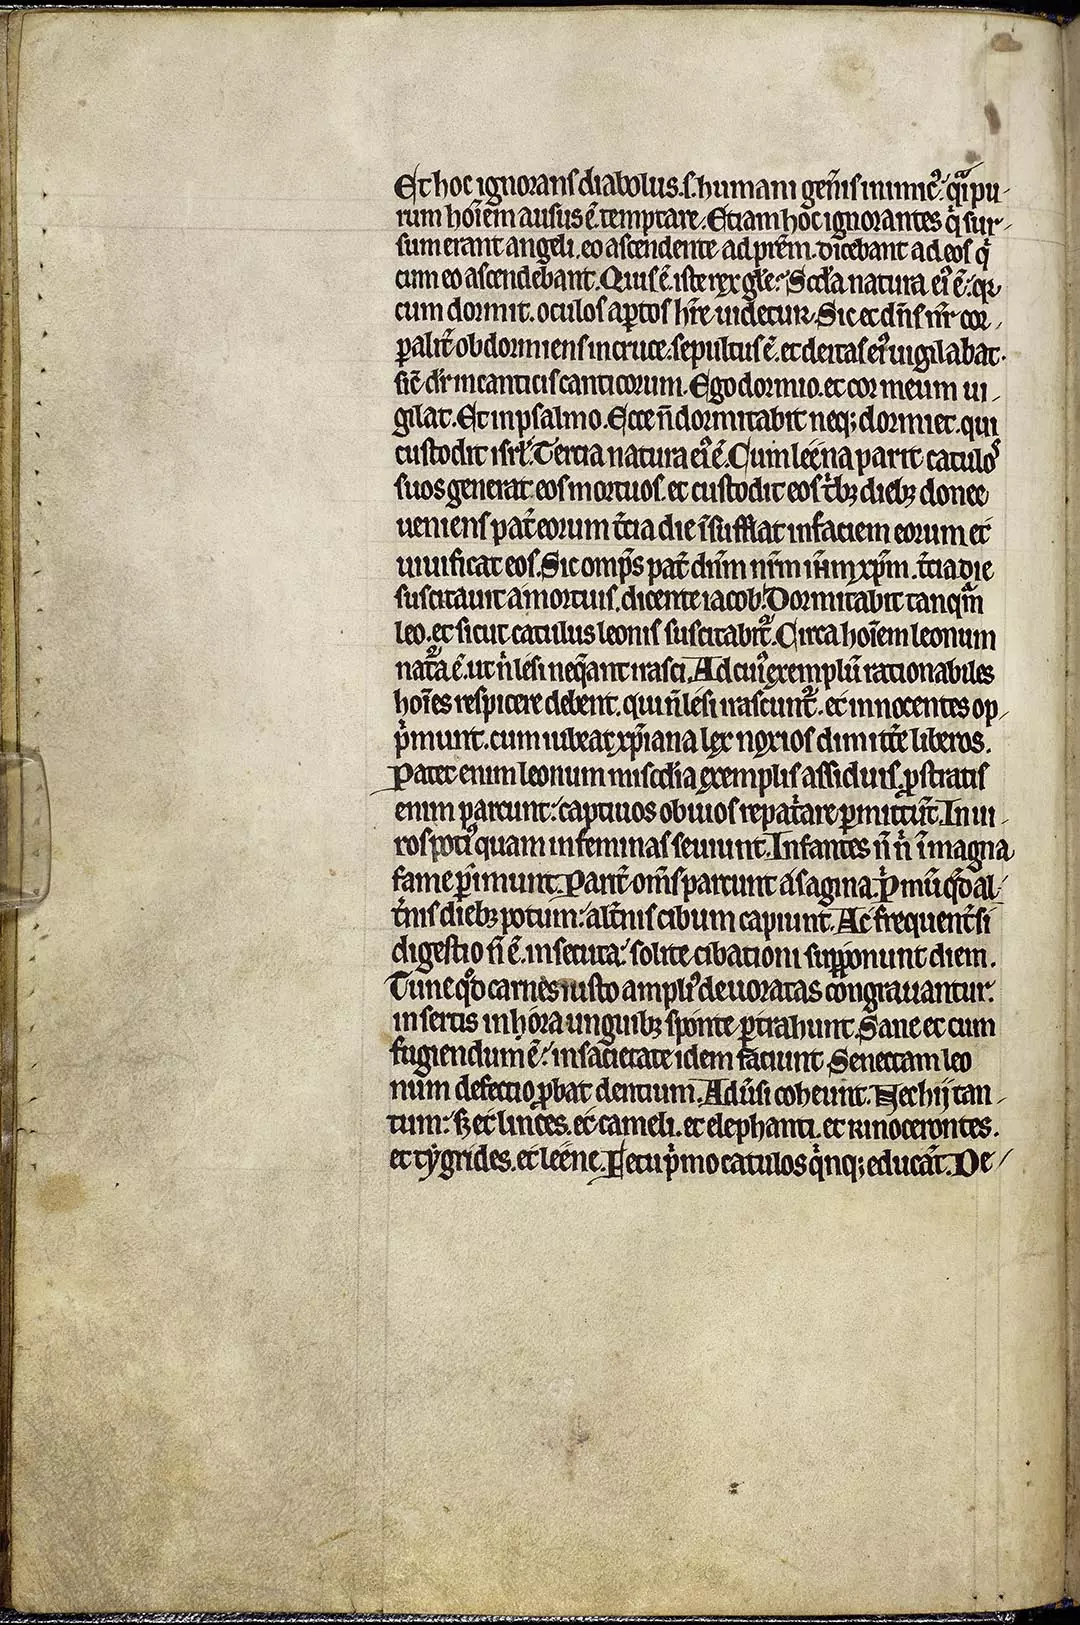 Et hoc ignorans diabolus .s. humani gen̄is inimicꝰ: q̄si pu-
rum hoīem ausus ē temptare. Etiam hoc ignorantes qͥ sur-
sum erant angeli. eo ascendente ad pr̄em. dicebant ad eos qͥ
cum eo ascendebant. Quis ē iste rex gl̄e. Scd̄a natura eiꝰ ē: qꝛ
cum dormit. oculos aptos hr̄e uidetur. Sic et dn̄s nr̄ cor-
ꝑalit̄ obdormiens in cruce: sepultus ē. et deitas eiꝰ uigilabat.
sic̄ dr̄ in canticis canticorum. Ego dormio. et cor meum ui-
gilat. Et in psalmo. Ecce n̄ dormitabit neqꝫ dormiet. qui
custodit isrl̄. Tercia natura eiꝰ ē. Cum leena parit catulos
suos generat eos mortuos. et custodit eos tͥbꝫ diebꝫ donec
ueniens pat̄ eorum t̄cia die īsufflat in faciem eorum et
uiuificat eos. Sic omp̄s pat̄ dn̄m nr̄m ih̄m xp̄m. t̄cia die
suscitauit a mortuis. dicente iacob. Dormitabit tanqͣm
leo. et sicut catulus leonis suscitabit᷑. Circa hoīem leonum
nat᷑a ē. ut nͥ lesi neqͣant irasci. Ad cuiꝰ exemplū rationabiles
hoīes respicere debent. qui n̄ lesi irascunt᷑. et innocentes op-
pͥmunt. cum iubeat xp̄iana lex noxios dimitt̄e liberos.
Patet enim leonum misc̄dia exemplis assiduis. ꝓstratis
enim parcunt: captiuos obuios repatͥare ꝑmittūt. In ui-
ros potiꝰ quam in feminas seuiunt. Infantes n̄ nͥ ī magna
fame pͥimunt. Parit̄ om̄s parcunt a sagina. Pͥmū qͦd al-
t̄nis diebꝫ potum: alt̄nis cibum capiunt. Ac frequent̄ si
digestio n̄ ē. insecuta: solite cibationi suꝑponunt diem.
Tunc qͦd carnes iusto ampliꝰ deuoratas congrauantur:
insertis in hora unguibꝫ sponte ꝑtrahunt. Sane et cum
fugiendum ē: in sacietate idem faciunt. Senectam leo
num defectio ꝓbat dentium. Aduersi coheunt. Nec hij tan-
tum: sꝫ et linces. et cameli. et elephanti. et rinocerontes.
et tygrides. et leene. Fetu pͥmo catulos qͥnqꝫ educāt. De-